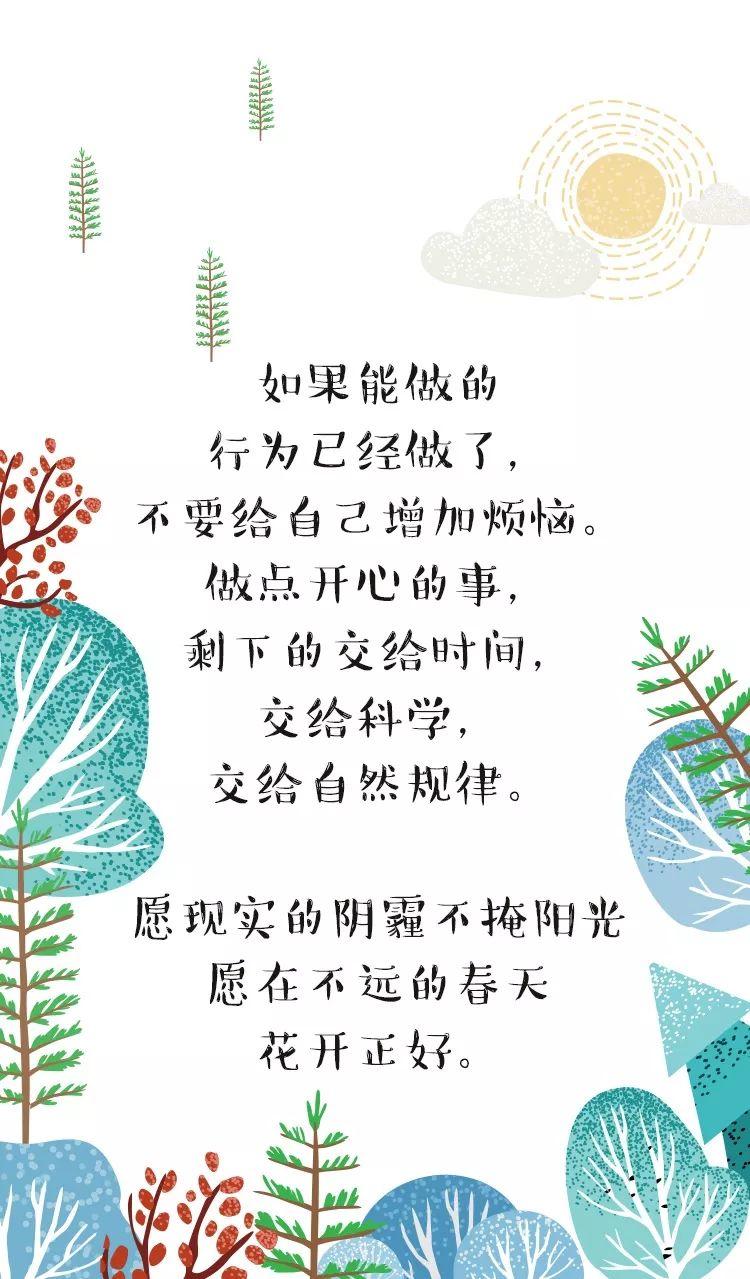 如果能做的
行为已经做了,
不要给自己增加烦恼。
做点开心的事,
剩下的交给时间,
交给科学,
交给自然规律。
愿现实的阴霾不掩阳光
愿在不远的春天
花开正好。